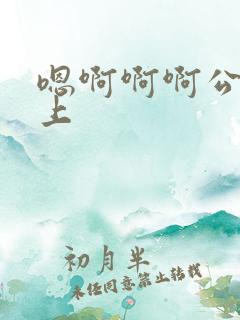 嗯啊啊啊公
上
初月半
未经同意禁止转载